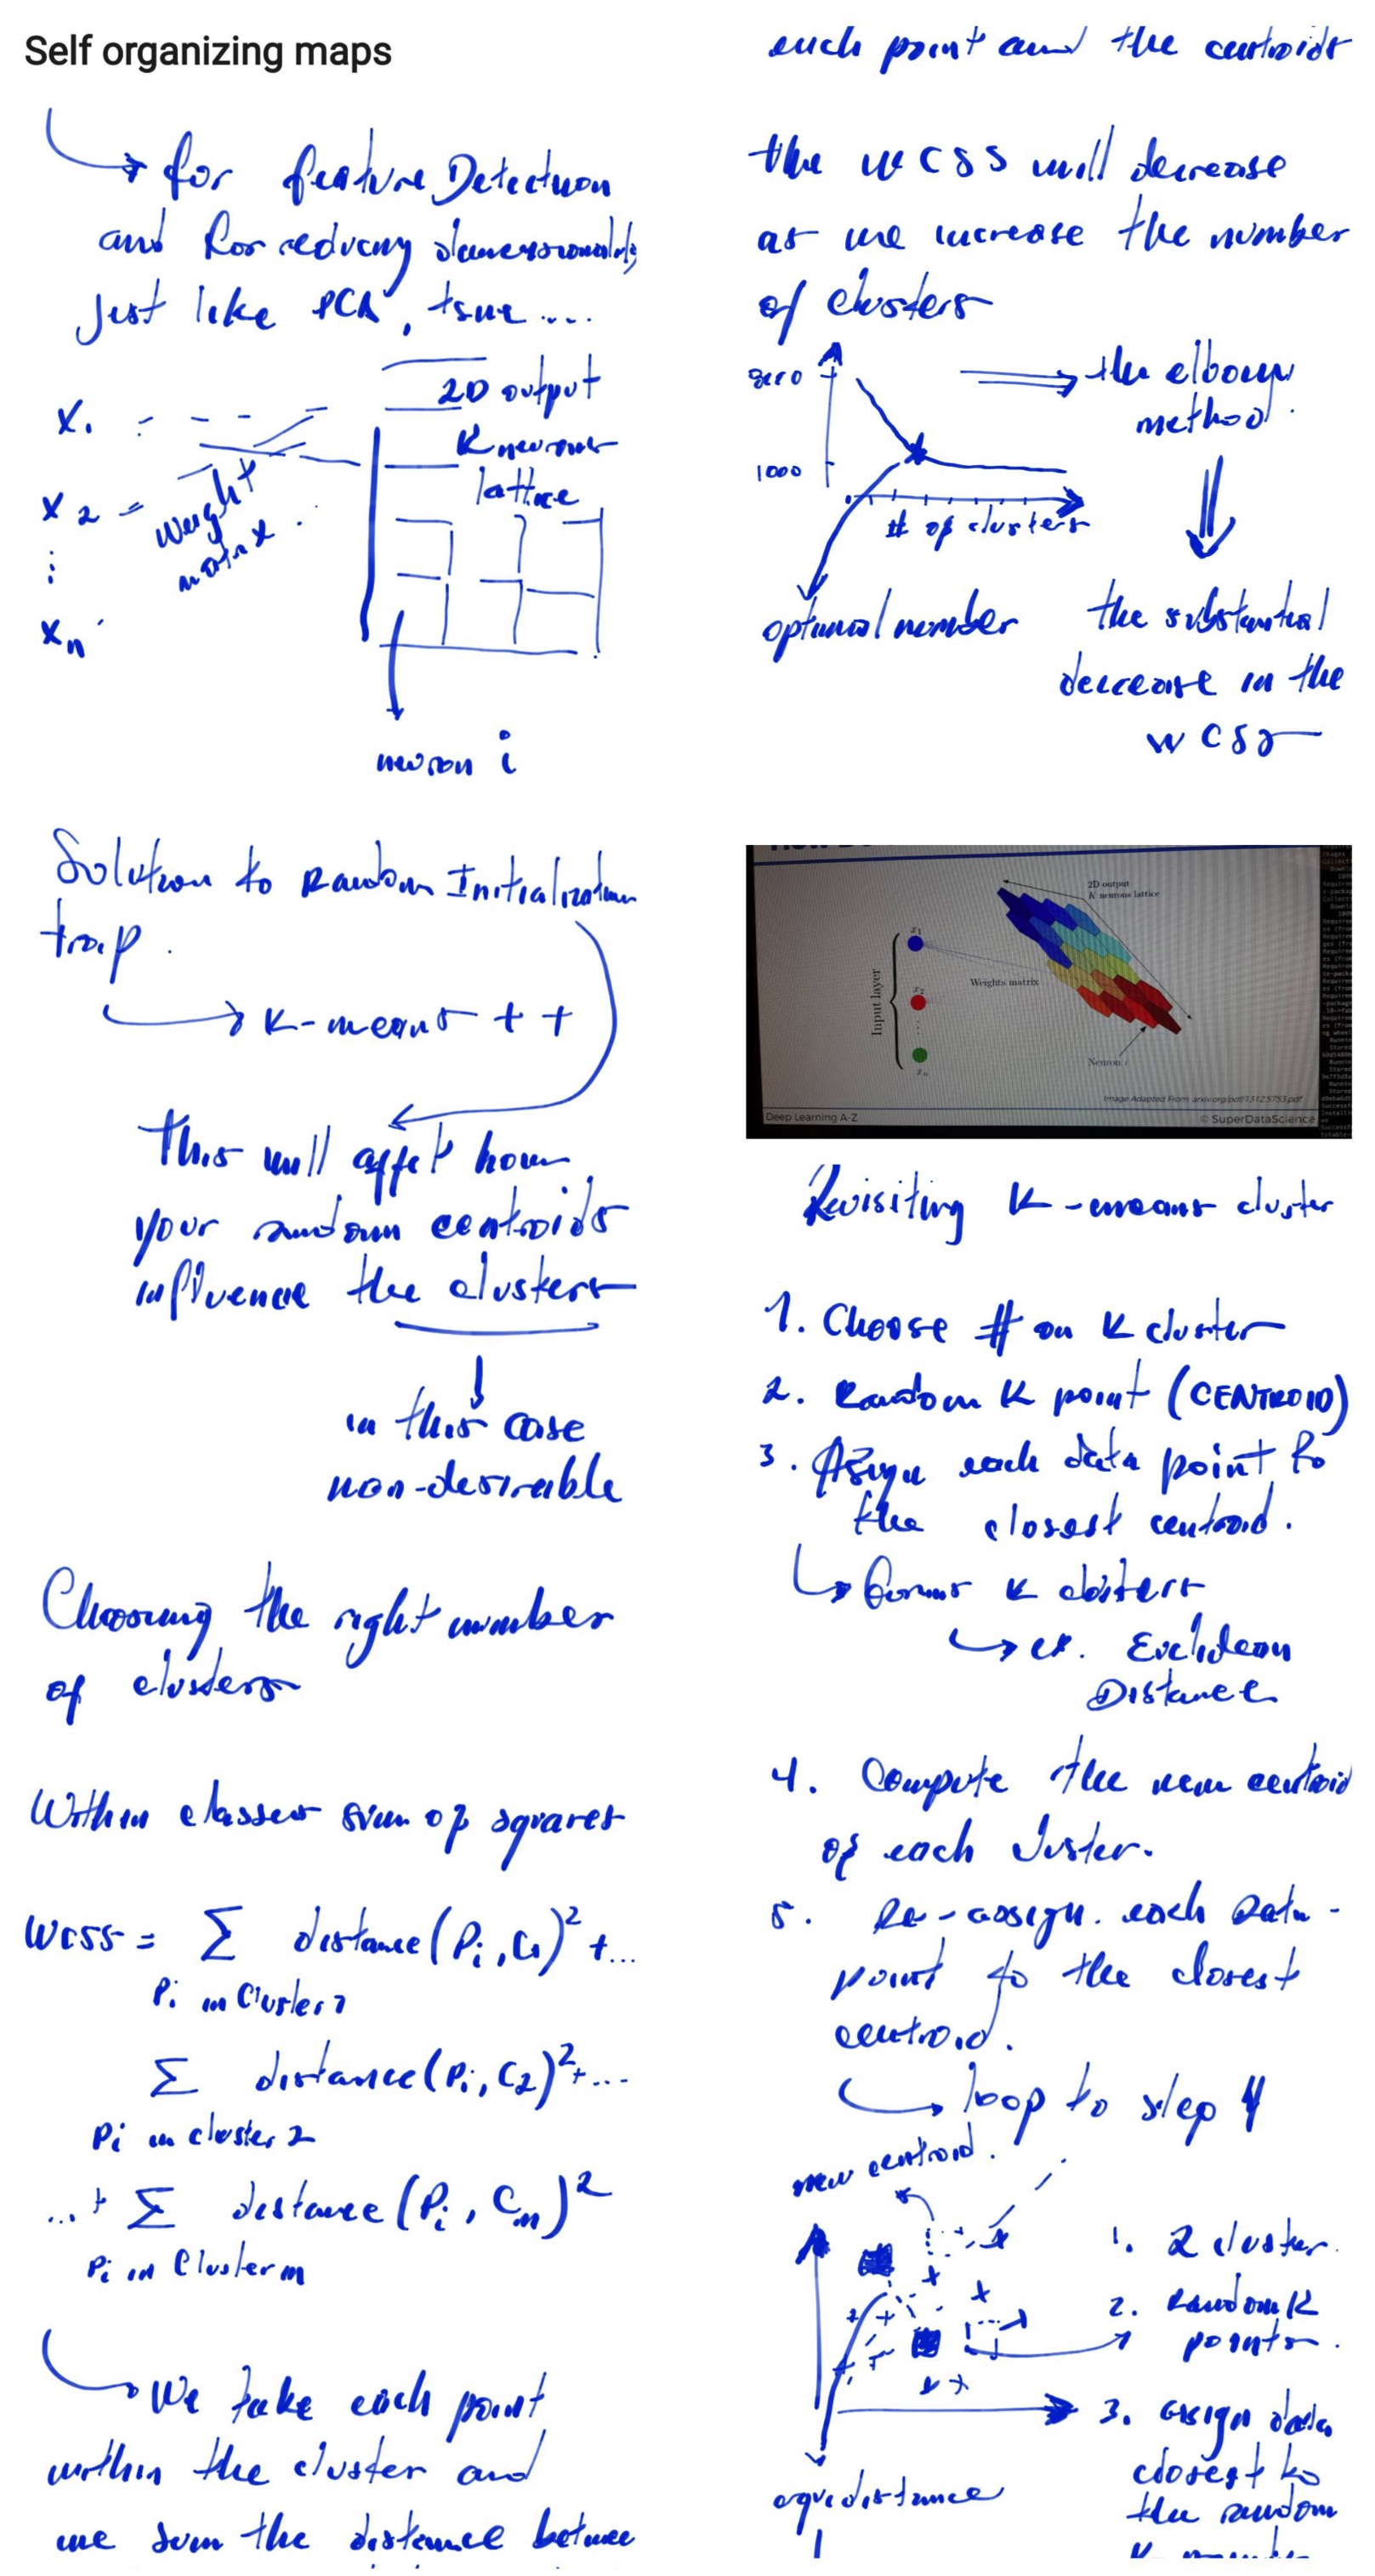 Self organizing maps
for feature Detection
and for reducing dimensionality
just like PCA, tsne ...
2D output
K neurons
lattice
x1
x2
weight
matrix
xn
neuron i
Solution to Random Initialization
trap.
K-means ++
This will affet how
your random centroids
influence the clusters
in this case
non-desirable
Choosing the right number
of clusters
Within classes sum of squares
WCSS = Σ distance(Pi, C1)² + ...
Pi in Cluster 1
Σ distance(Pi, C2)² + ...
Pi in cluster 2
... + Σ distance(Pi, Cm)²
Pi in Cluster m
We take each point
within the cluster and
we sum the distance betwee
each point and the centroids
the WCSS will decrease
as we increase the number
of clusters
the elbow
method.
1000
# of clusters
optimal number
the substantial
decrease in the
WCSS
2D output
K neurons lattice
x1
Input layer
Weights matrix
x2
xn
Neuron i
Image Adapted From: arxiv.org/pdf/1312.5753.pdf
Deep Learning A-Z
© SuperDataScience
Revisiting K-means cluster
1. Choose # on K cluster
2. Random K point (CENTROID)
3. Assign each data point to
the closest centroid.
forms K clusters
ex. Euclidean
Distance
4. Compute the new centroid
of each cluster.
5. Re-assign. each Data-
point to the closest
centroid.
loop to step 4
new centroid.
1. 2 cluster.
2. Random K
points.
3. assign data
closest to
the random
equidistance